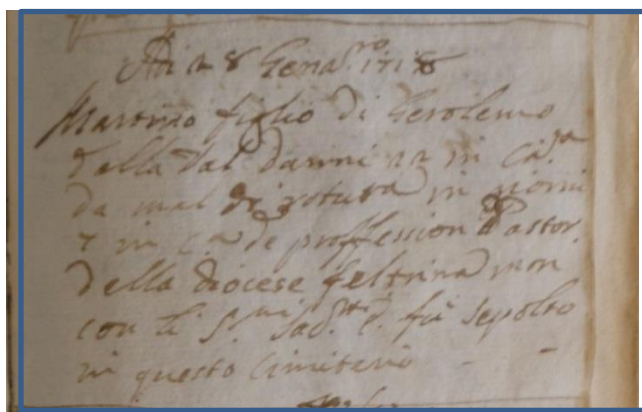 Adi 28 Gena.ro 1718
Martino figlio di Gerolemo
dalla Val d'anni 22 in C.a
da mal di rotura in giorni
7 in C.a de proffession Pastor
della diocese feltrina mon
con li S.mi Sad.ti e fu sepolto
in questo Cimiterio